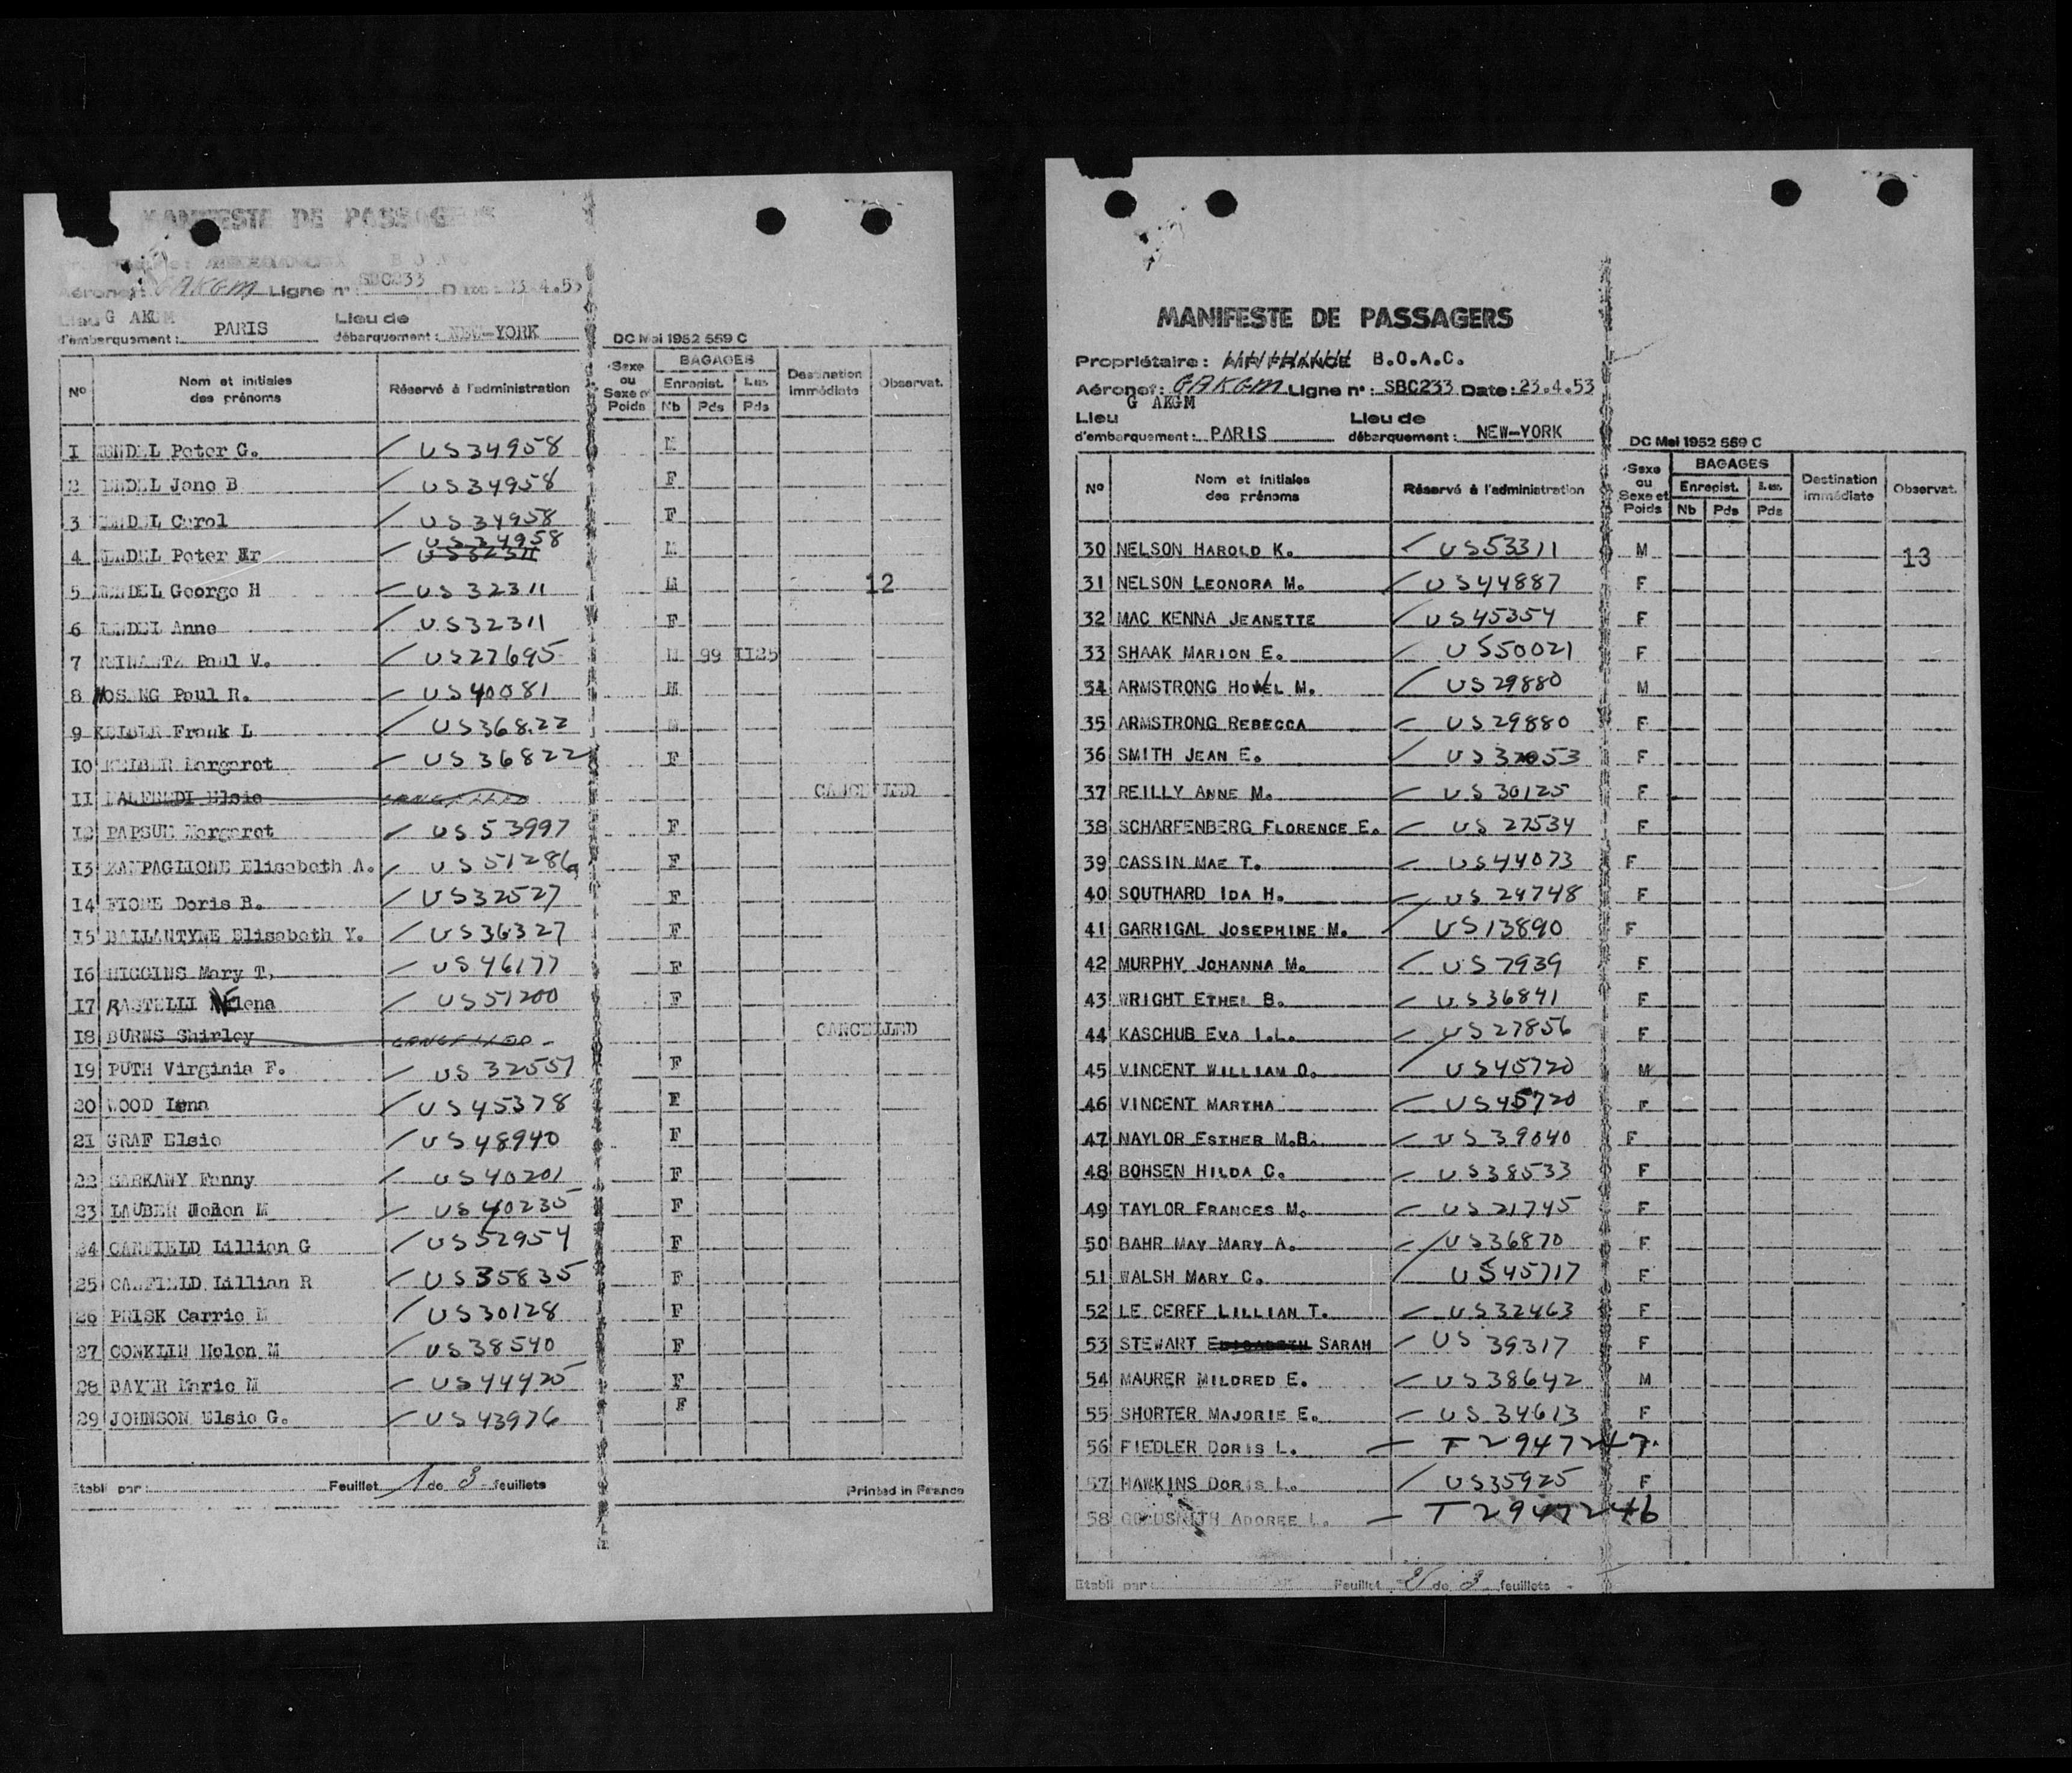 MANIFESTE DE PASSAGERS
B O A C
Aéronef: GAKGM Ligne n°: SBC233 Date: 23.4.53
G AKGM
Lieu d'embarquement: PARIS Lieu de débarquement: NEW-YORK
DC Mai 1952 559 C
N° Nom et initiales des prénoms Réservé à l'administration Sexe ou Sexe et Poids BAGAGES Enregist. Nb Pds Pds Destination immédiate Observat.
1 Peter G. US34958 M
2 Jane B US34958 F
3 Carol US34958 F
4 Peter US34958 US32311 M
5 George H US32311 M 12
6 Anne US32311 F
7 Paul V. US27695 M 99 1125
8 Paul R. US40081 M
9 KEIBER Frank L US36822 M
10 KEIBER Margaret US36822 F
11 Elsie CANCELLED CANCELLED
12 PAPSUN Margaret US53997 F
13 ZAMPAGLIONE Elisabeth A. US51286 F
14 FIORE Doris B. US32527 F
15 BALLANTYNE Elisabeth Y. US36327 F
16 HIGGINS Mary T. US46177 F
17 RASTELLI US51200 F
18 BURNS Shirley CANCELLED CANCELLED
19 PUTH Virginia F. US32557 F
20 WOOD Lena US45378 F
21 GRAF Elsie US48940 F
22 SARKANY Fanny US40201 F
23 LAUBER Helen M US40235 F
24 CANFIELD Lillian G US52954 F
25 CANFIELD Lillian R US35835 F
26 PRISK Carrie M US30128 F
27 CONKLIN Helen M US38540 F
28 BAYER Marie M US44425 F
29 JOHNSON Elsie G. US43976 F
Etabli par: Feuillet 1 de 3 feuillets Printed in France
MANIFESTE DE PASSAGERS
Propriétaire: AIR FRANCE B.O.A.C.
Aéronef: GAKGM Ligne n°: SBC233 Date: 23.4.53
G AKGM
Lieu d'embarquement: PARIS Lieu de débarquement: NEW-YORK
DC Mai 1952 559 C
N° Nom et initiales des prénoms Réservé à l'administration Sexe ou Sexe et Poids BAGAGES Enregist. Nb Pds Pds Destination immédiate Observat.
30 NELSON HAROLD K. US53311 M 13
31 NELSON LEONORA M. US44887 F
32 MAC KENNA JEANETTE US45354 F
33 SHAAK MARION E. US50021 F
34 ARMSTRONG M. US29880 M
35 ARMSTRONG REBECCA US29880 F
36 SMITH JEAN E. F
37 REILLY ANNE M. US30125 F
38 SCHARFENBERG FLORENCE E. US27534 F
39 CASSIN MAE T. US44073 F
40 SOUTHARD IDA H. US24748 F
41 GARRIGAL JOSEPHINE M. US13890 F
42 MURPHY JOHANNA M. US7939 F
43 WRIGHT ETHEL B. US36841 F
44 KASCHUB EVA I.L. US27856 F
45 VINCENT WILLIAM O. US45720 M
46 VINCENT MARTHA US45720 F
47 NAYLOR ESTHER M.B. US39040 F
48 BOHSEN HILDA C. US38533 F
49 TAYLOR FRANCES M. US21745 F
50 BAHR MAY MARY A. US36870 F
51 WALSH MARY C. US45717 F
52 LE CERFF LILLIAN T. US32463 F
53 STEWART SARAH US39317 F
54 MAURER MILDRED E. US38642 M
55 SHORTER MAJORIE E. US34613 F
56 FIEDLER DORIS L. T2947247
57 HAWKINS DORIS L. US35925 F
58 GOLDSMITH ADOREE L. T2947246
Etabli par: Feuillet 2 de 3 feuillets